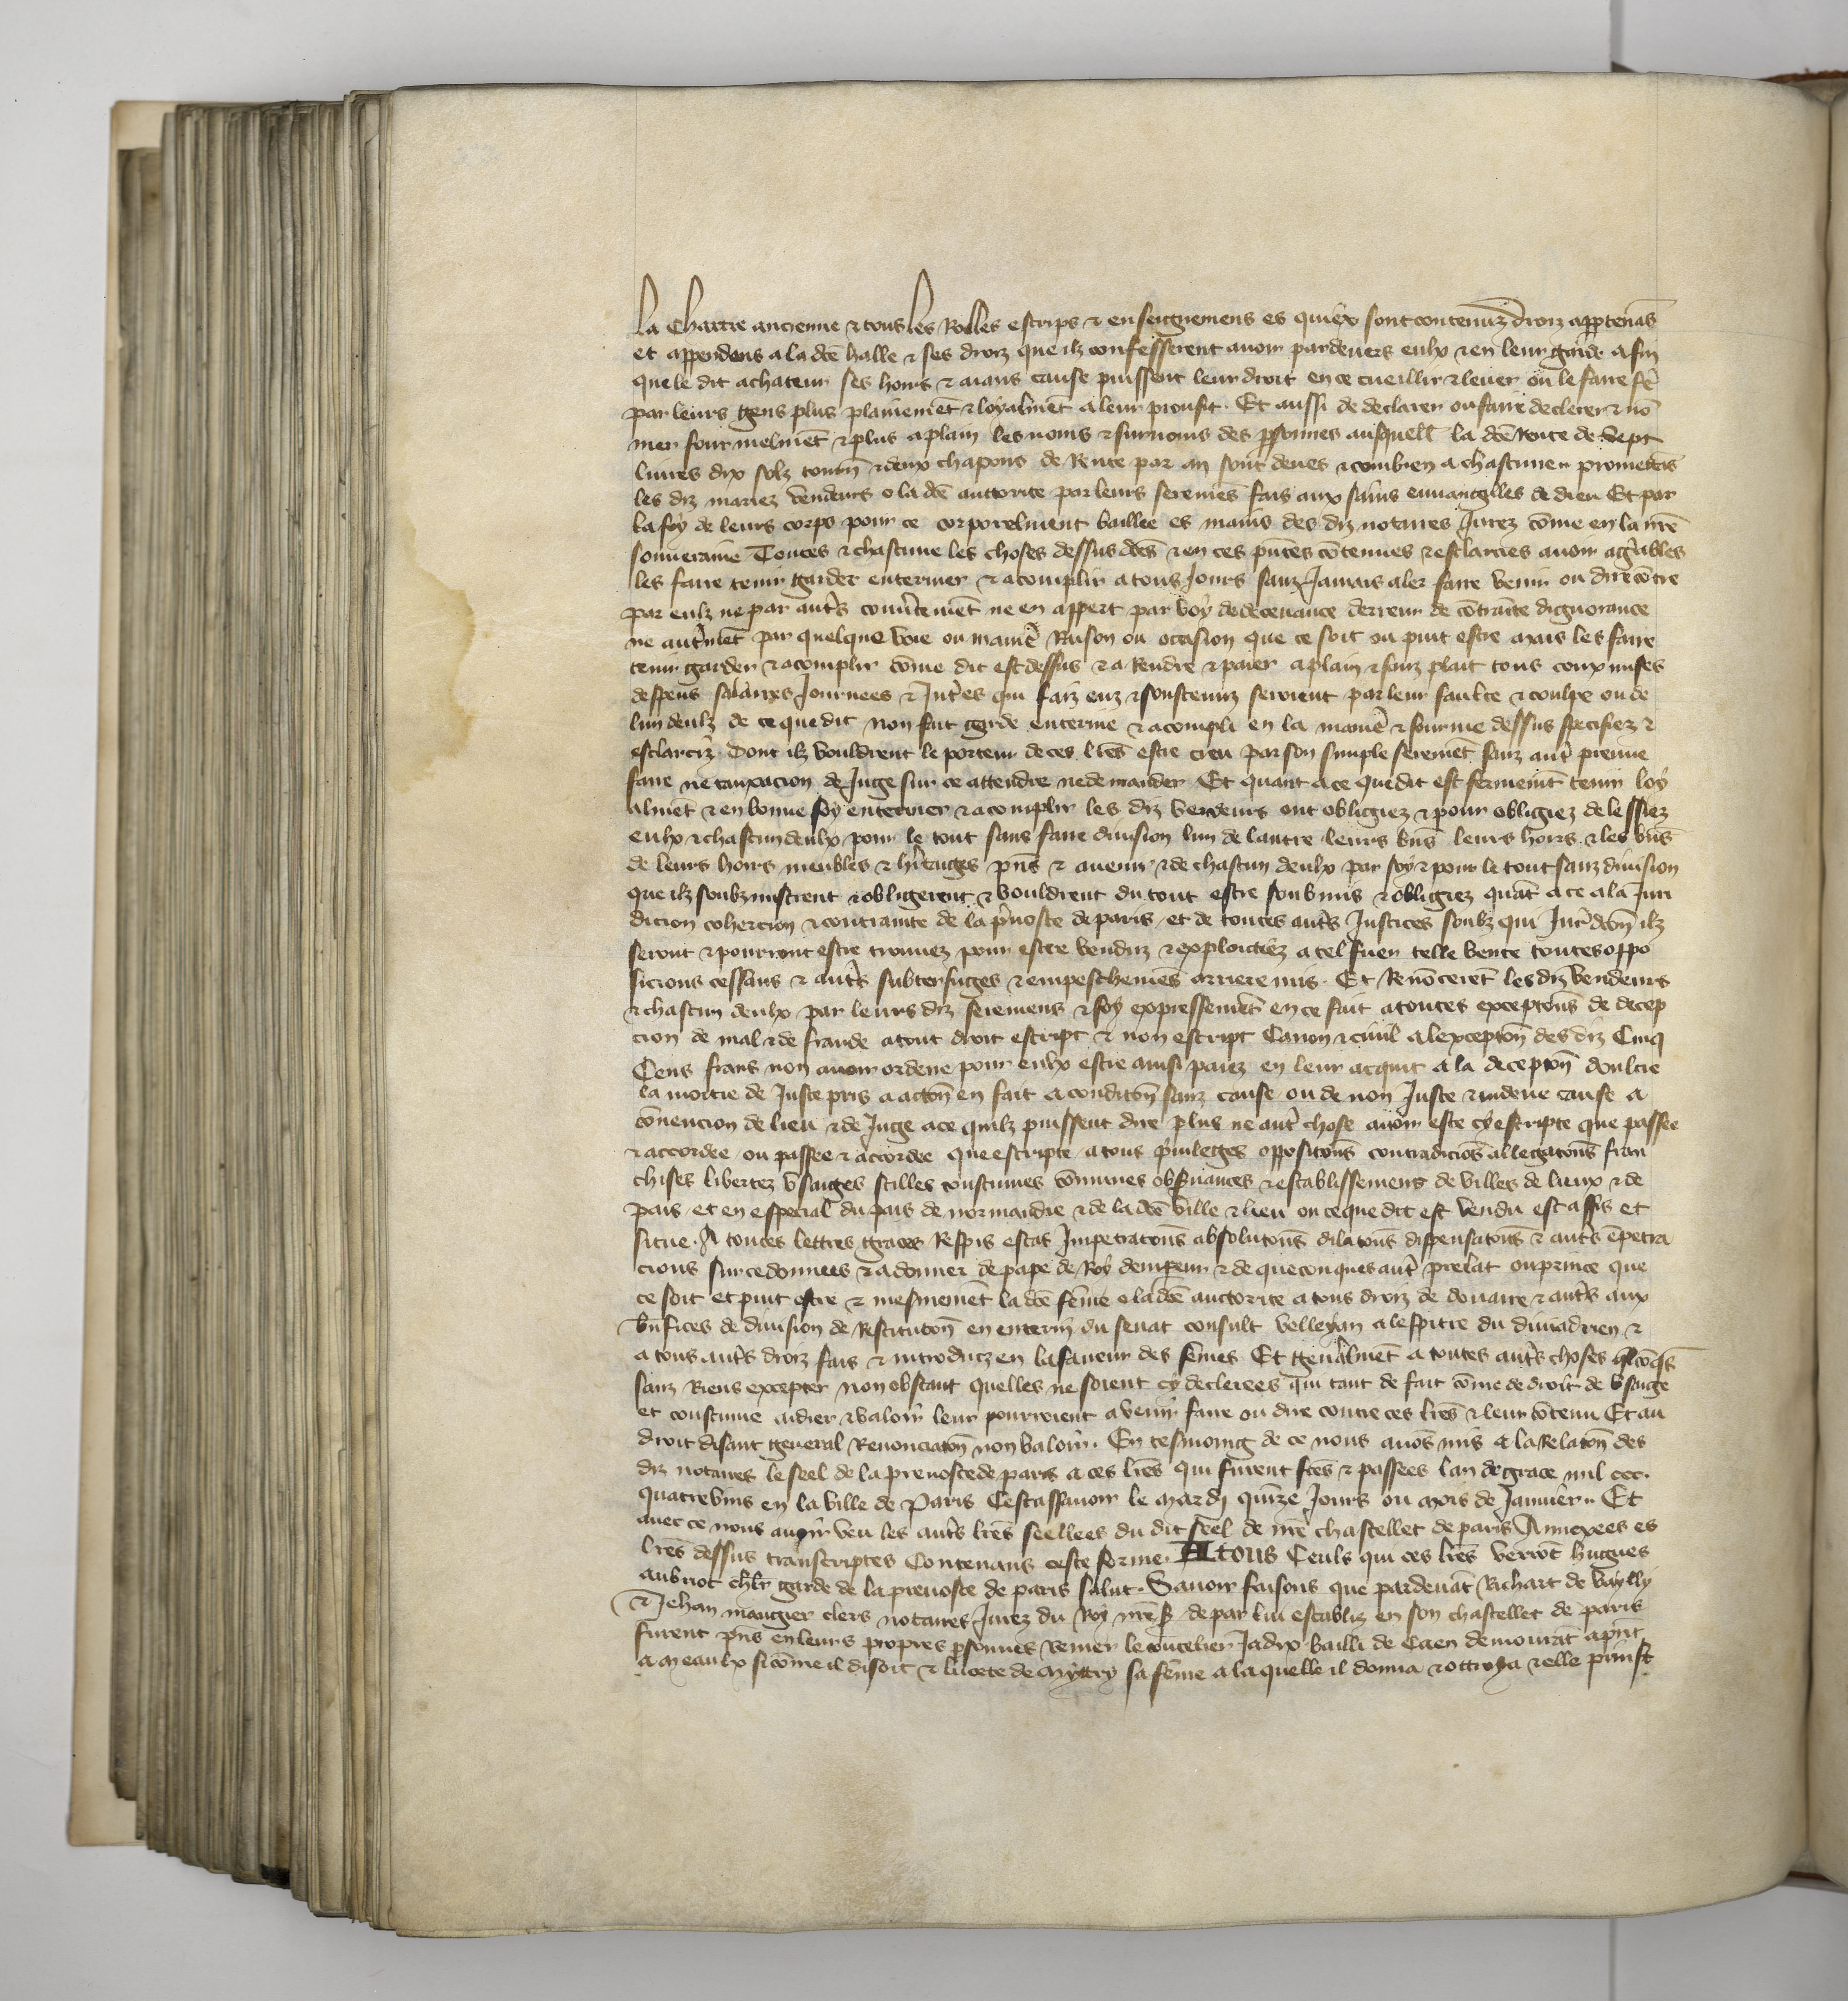 la Chartre ancienne & tous les Rolles escrips & enseignemens es quiex sont contenuz droiz apptenās
et appendens a la dcē halle & ses droiz que ilz confesserent auoir pardeuers eulx & en leur garde afin
que le dit achateur ses hoirs & aians cause puissent leur droit en ce cueillir & leuer ou le faire fē
par leurs gens plus plainemēt & loyalmēt a leur proufit. Et aussi de declarer ou faire declerer & nō
mer fourmelmēt & plus aplain les noms & surnoms des psonnes ausquell la dcē Rente de vept
liures dix solz tourn & deux chapons de Rente par an sont deues & combien a chascune promettās
les diz mariez vendeurs o la dcē auctorite par leurs seremēs fais aux sains euuangilles de dieu Et par
la foy de leurs corps pour ce corporelment baillee es mains des diz notaires Jurez cōme en la nrē
souueraine Toutes & chascune les choses dessus dcēs & en ces pntes cōtenues & esclarcies auoir agreables
les faire tenir garder enteriner & acomplir a tous Jours sanz Jamais aler faire venir ou dire cōtre
par eulz ne par autrs couuertemēt ne en appert par voy de deceuance derreur de cōtrainte dignorance
ne autrmēt par quelque voie ou manie Raison ou occasion que ce soit ou puit estre mais les faire
tenir garder & acomplir cōme dit est dessus & a Rendre & paier aplain & sanz plait tous coux mises
despens salaires Journees & Jntres qui faiz euz & soustenuz seroient par leur faulte & coulpe ou de
lun deulz de ce que dit non fut garde enterine & acompli en la manie & fourme dessus specifiez &
esclarciz. Dont ilz vouldrent le porteur de ces lrēs estre creu par son simple seremēt sanz autr preuue
faire ne tauxacion de Juge sur ce attendre ne demander Et quant a ce que dit est fermemēt tenir loy
almēt & en bonne foy enteriner & acomplir les diz vendeurs ont obligiez & pour obligiez delessiez
eulx & chascun deulx pour le tout sans faire diuision lun de lautre leurs bns leurs hoirs & les bns
de leurs hoirs meubles & hritages pns & auenir & de chascun deulx par soy & pour le tout sanz diuision
que ilz soubzmistrent & obligerent & vouldrent du tout estre soubmis & obligiez quāt a ce a la Juri
dicion cohercion & contrainte de la preuoste de paris et de toutes autrs Justices soubz qui Jurdcon ilz
seront & pourront estre trouuez pour estre venduz & exploictiez a tel fuer telle vente toutes oppo
sicions cessans & autrs subterfuges & empeschemēs arriere mis. Et Renōcerēt les diz vendeurs
& chascun deulx par leurs diz seremens & foy expressemēt en ce fait a toutes exceptons de decep
cion de mal & de fraude a tout droit escript & non escript Canon & ciuil a lexcepton des diz Cinq
Cens frans non auoir ordene pour eulx estre ainsi paiez en leur acquit a la decepton doultre
la moitie de Juste pris a acton en fait a conditon sanz cause ou de non Juste & indeue cause a
cōuencion de lieu & de Juge a ce quilz puissent dire plus ne autr chose auoir este cy escripte que passee
& accordee ou passee & accordee que escripte a tous priuileges oppositons contradicions allegatons fran
chises libertez vsaiges stilles coustumes cōmunes obseruances & establissemens de villes de lieux & de
pais et en especial du pais de normandie & de la dcē ville & lieu ou ce que dit est vendu est assis et
situe. A toutes lettres graces Respis estas Jmpetratons absolutons dilatons dispensatons & autrs ēpetra
cions sur ce donnees & a donner de pape de Roy dempereur & de queconques autr prelat ou prince que
ce soit et puit estre & mesmemēt la dcē fēme o la dcē auctorite a tous droiz de douaire & autrs aux
bnfices de diuision de Restituton en enterin du senat consult velleyan a lespitre du diuadrien &
a tous autrs droiz fais & introduiz en la faueur des fēmes Et generalmēt a toutes autrs choses qlcōqs
sanz Riens excepter non obstant quelles ne soient cy declerees qui tant de fait cōme de droit de vsaige
et coustume aidier & valoir leur pourroient a venir faire ou dire contre ces lrēs & leur cōtenu Et au
droit disant general Renonciaton non valoir. En tesmoing de ce nous auōs mis a la Relaton des
diz notaires le seel de la preuoste de paris a ces lrēs qui furent fcēs & passees lan de grace mil ccc.
quatrevins en la ville de Paris Cestassauoir le mardj quinze Jours ou mois de Januier. Et
auec ce nous auoir veu les autrs lrēs seellees du dit seel de nrē chastellet de paris Annexees es
lrēs dessus transcriptes Contenans ceste forme. A tous Ceuls qui ces lrēs verrōt hugues
aubriot chlr garde de la preuoste de paris salut. Sauoir faisons que pardeuāt Richart de vaylly
& Jehan maugier clers notaires Jurez du Roy nrē s de par lui establiz en son chastellet de paris
furent pns en leurs propres psonnes Renier le coutelier Jadix bailli de Caen demourāt apnt
a meaulx si cōme il disoit & lucete de mytry sa fēme a la quelle il donna & ottroya & elle prinst